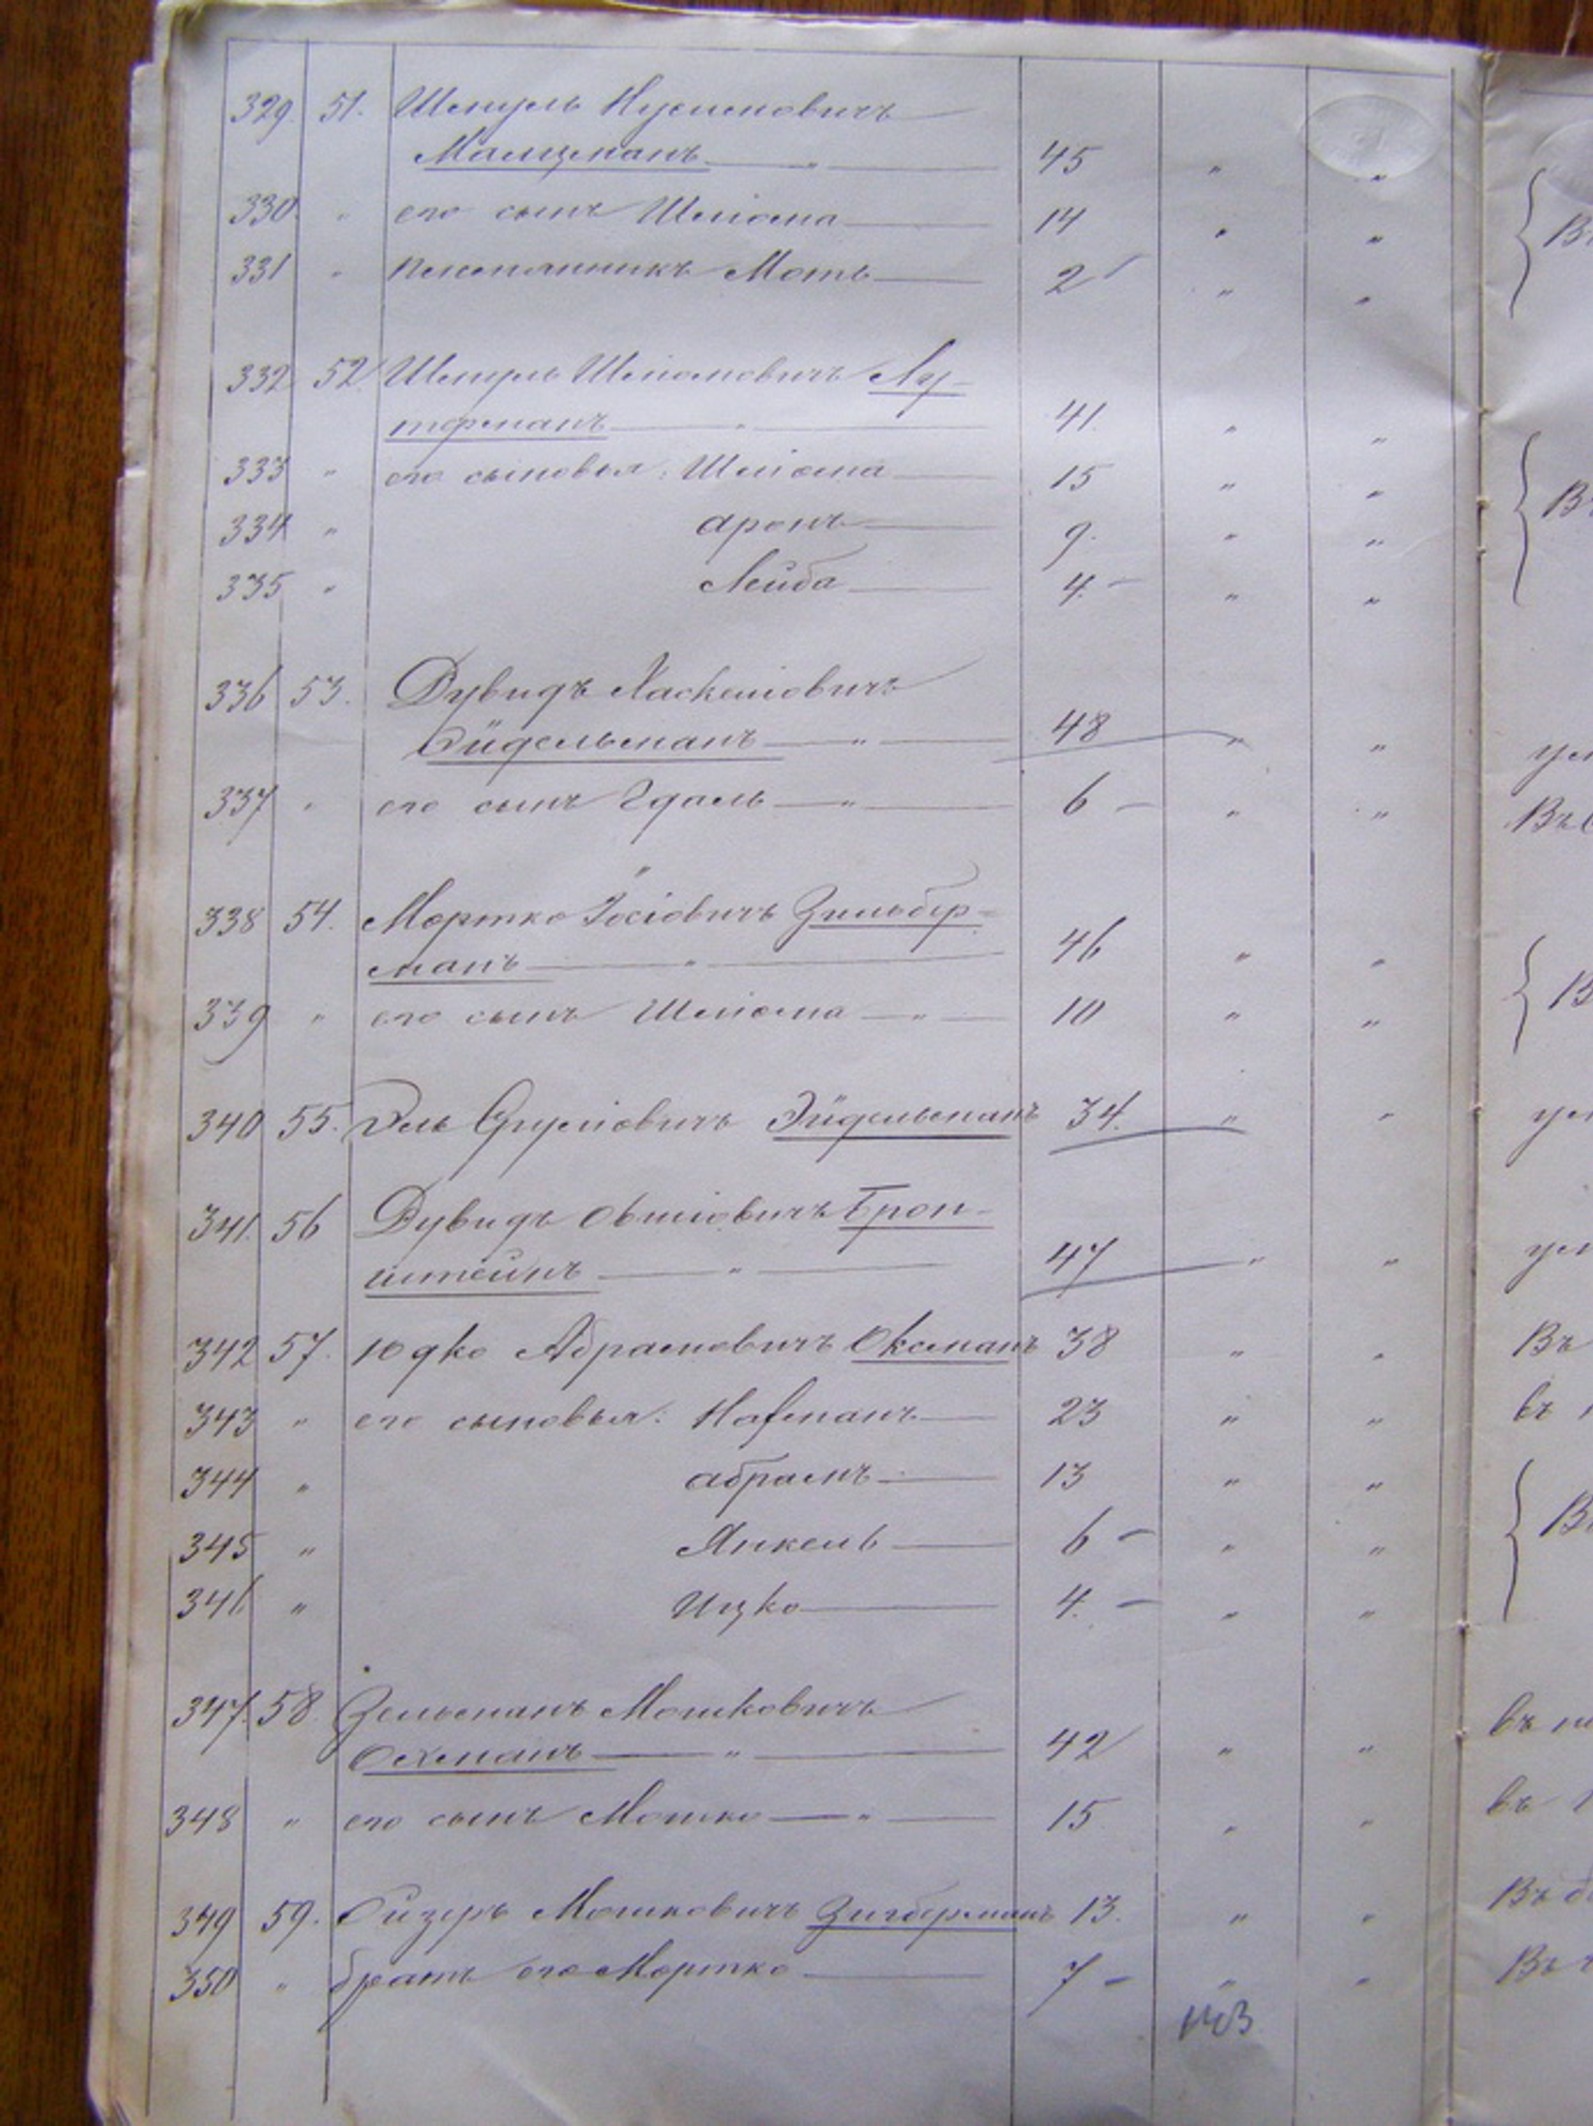 329. 51. Шмуль Нусиновичъ
Малцманъ — " — 45 " "
330. " его сынъ Шліома — 14 " "
331 " племянникъ Моть — 2 " "
332 52 Шмуль Шліомовичъ Лу-
тфманъ — " — 41. " "
333 " его сыновья: Шліома — 15 " "
334 " аронъ — 9. " "
335 " Лейба — 4. — " "
336 53. Дувидъ Хаскеліовичъ
Эйдельманъ — " — 48 " "
337 " его сынъ Гдаль — " — 6 — " "
338 54. Мортко Іосіовичъ Зильбер-
манъ — " — 46 " "
339 " его сынъ Шліома — " — 10 " "
340 55. Эль Сруліовичъ Эйдельманъ 34. " "
341. 56 Дувидъ Овшіовичъ Брон-
штейнъ — " — 47 " "
342 57. Юдко Абрамовичъ Оксманъ 38 " "
343 " его сыновья: Нафманъ — 23 " "
344 " абрамъ — 13 " "
345 " Янкель — 6 — " "
346 " Ицко — 4. — " "
347. 58. Зельманъ Мошковичъ
Оксманъ — " — 42 " "
348 " его сынъ Мошко — " — 15 " "
349 59. Ойзеръ Мошковичъ Зигберманъ 13. " "
350 " братъ его Мортко — 7 — " "